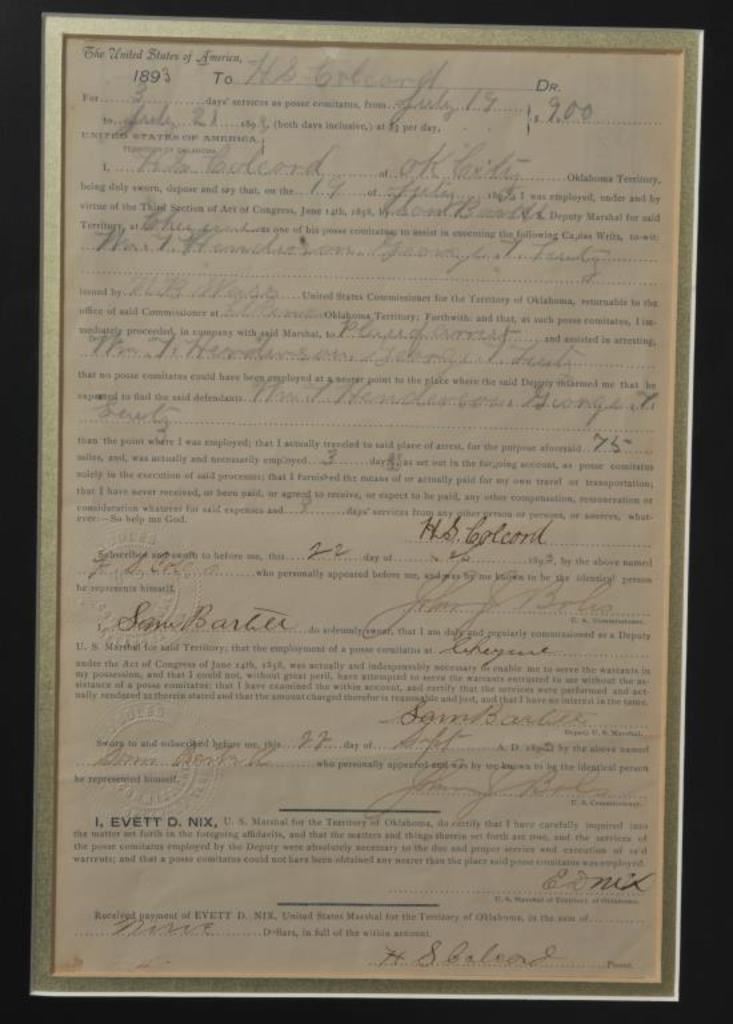 The United States of America,
1893 To H. S. Colcord DR.
For 3 days' services as posse comitatus, from July 19 $ 9.00
to July 21 189 , (both days inclusive,) at $3 per day,
UNITED STATES OF AMERICA
TERRITORY OF OKLAHOMA
I, H S Colcord of OK City Oklahoma Territory,
being duly sworn, depose and say that, on the 19 of July 189 I was employed, under and by
virtue of the Third Section of Act of Congress, June 14th, 1858, by Sam Bartell Deputy Marshal for said
Territory, at Cheyenne as one of his posse comitatus, to assist in executing the following Capias Writs, to-wit:
Wm. T. Henderson George T.
issued by United States Commissioner for the Territory of Oklahoma, returnable to the
office of said Commissioner at Oklahoma Territory; Forthwith: and that, as such posse comitatus, I im-
mediately proceeded, in company with said Marshal, to place of arrest and assisted in arresting,
Wm. T. Henderson George T.
that no posse comitatus could have been employed at a nearer point to the place where the said Deputy informed me that he
expected to find the said defendants Wm T Henderson George T.
than the point where I was employed; that I actually traveled to said place of arrest, for the purpose aforesaid 75
miles, and, was actually and necessarily employed 3 days as set out in the forgoing account, as posse comitatus
solely in the execution of said process; that I furnished the means of or actually paid for my own travel or transportation;
that I have never received, or been paid, or agreed to receive, or expect to be paid, any other compensation, remuneration or
consideration whatever for said expenses and 3 days' services from any other person or persons, or sources, what-
ever:—So help me God.
H. S. Colcord
Subscribed and sworn to before me, this 22 day of 1893, by the above named
who personally appeared before me, and was by me known to be the identical person
he represents himself.
John J Boles
U. S. Commissioner.
I, Sam Bartell do solemnly swear, that I am duly and regularly commissioned as a Deputy
U. S. Marshal for said Territory; that the employment of a posse comitatus at Cheyenne
under the Act of Congress of June 14th, 1858, was actually and indespensibly necessary to enable me to serve the warrants in
my possession, and that I could not, without great peril, have attempted to serve the warrants entrusted to me without the as-
sistance of a posse comitatus; that I have examined the within account, and certify that the services were performed and act-
ually rendered as therein stated and that the amount charged therefor is reasonable and just, and that I have no interest in the same.
Sam Bartell
Deputy U. S. Marshal.
Sworn to and subscribed before me, this 22 day of Sept A. D. 189 by the above named
Sam Bartell who personally appeared and was by me known to be the identical person
he represented himself.
John J Boles
U. S. Commissioner.
I, EVETT D. NIX, U. S. Marshal for the Territory of Oklahoma, do certify that I have carefully inquired into
the matter set forth in the foregoing affidavits, and that the matters and things therein set forth are true, and the services of
the posse comitatus employed by the Deputy were absolutely necessary to the due and proper service and execution of said
warrents; and that a posse comitatus could not have been obtained any nearer than the place said posse comitatus was employed.
E D Nix
U. S. Marshal of Territory of Oklahoma.
Received payment of EVETT D. NIX, United States Marshal for the Territory of Oklahoma, in the sum of
Nine Dollars, in full of the within account.
H S Colcord Posse.